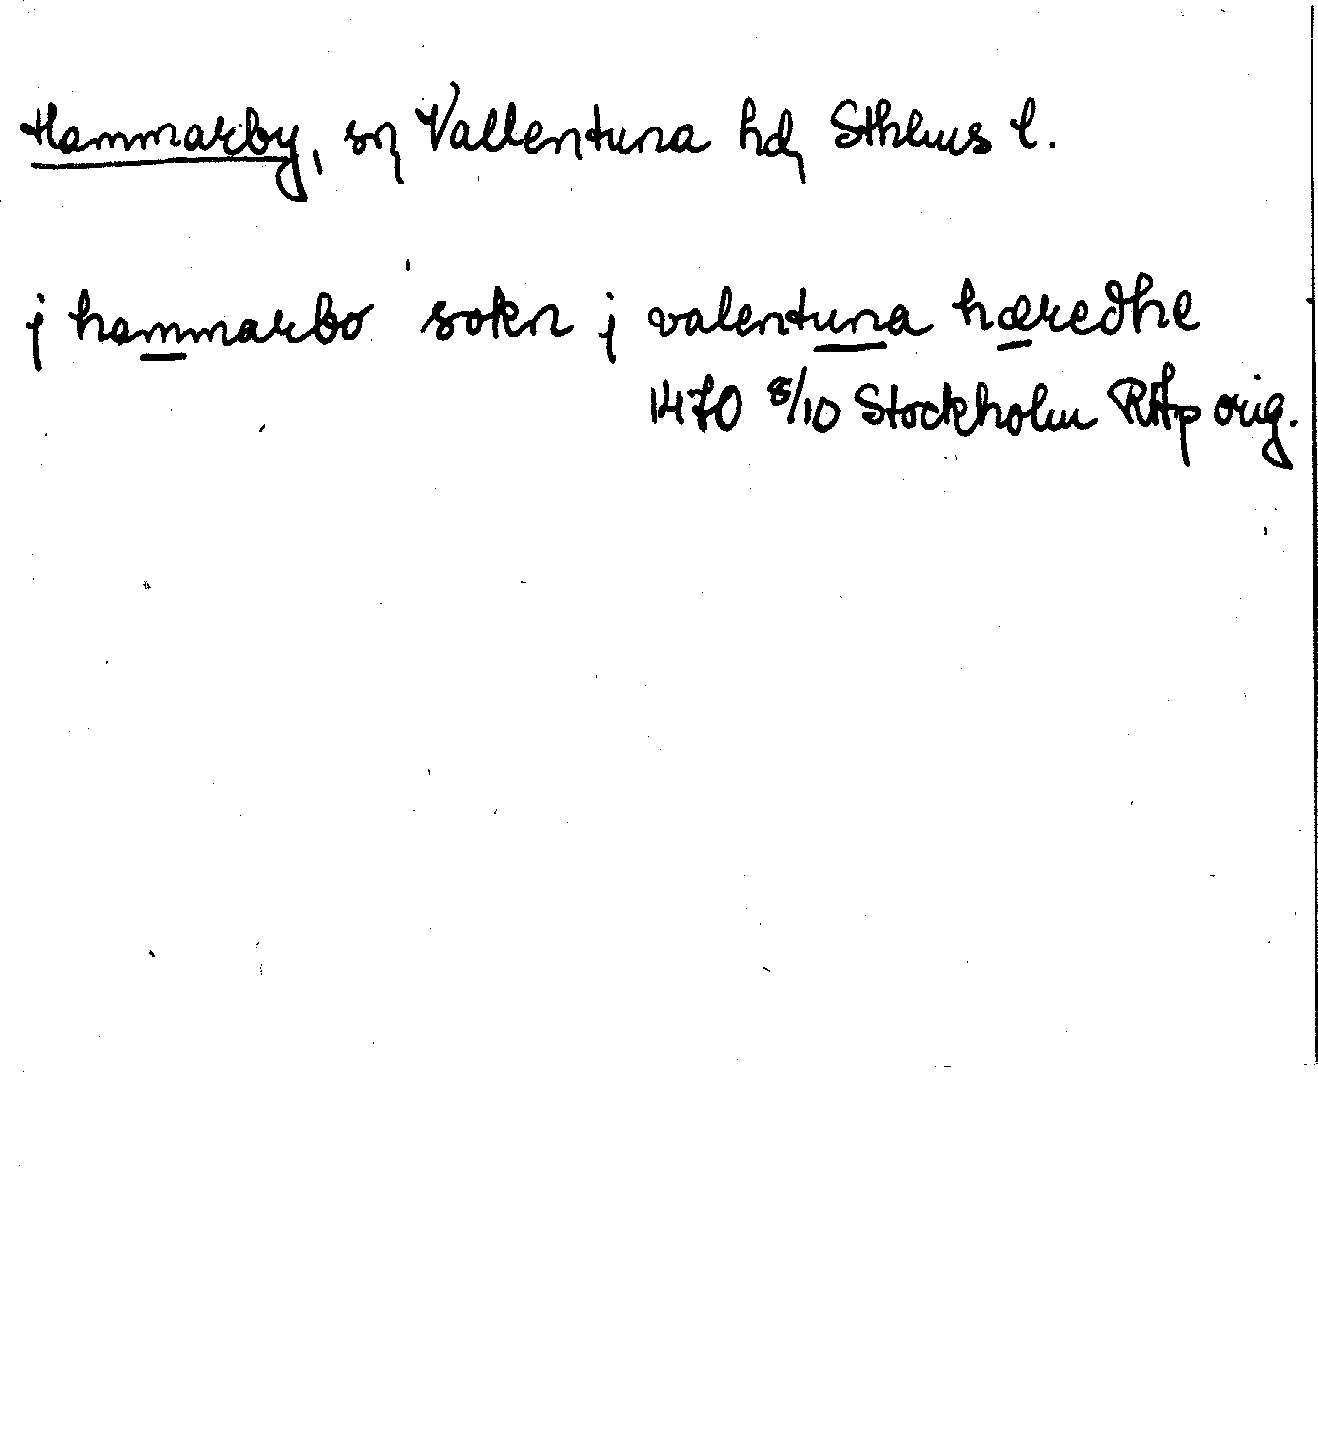 Hammarby, sn, Vallentuna hd, Sthlms l.
j hammarbo sokn j valentuna hæredhe
1470 8/10 Stockholm RAp orig.